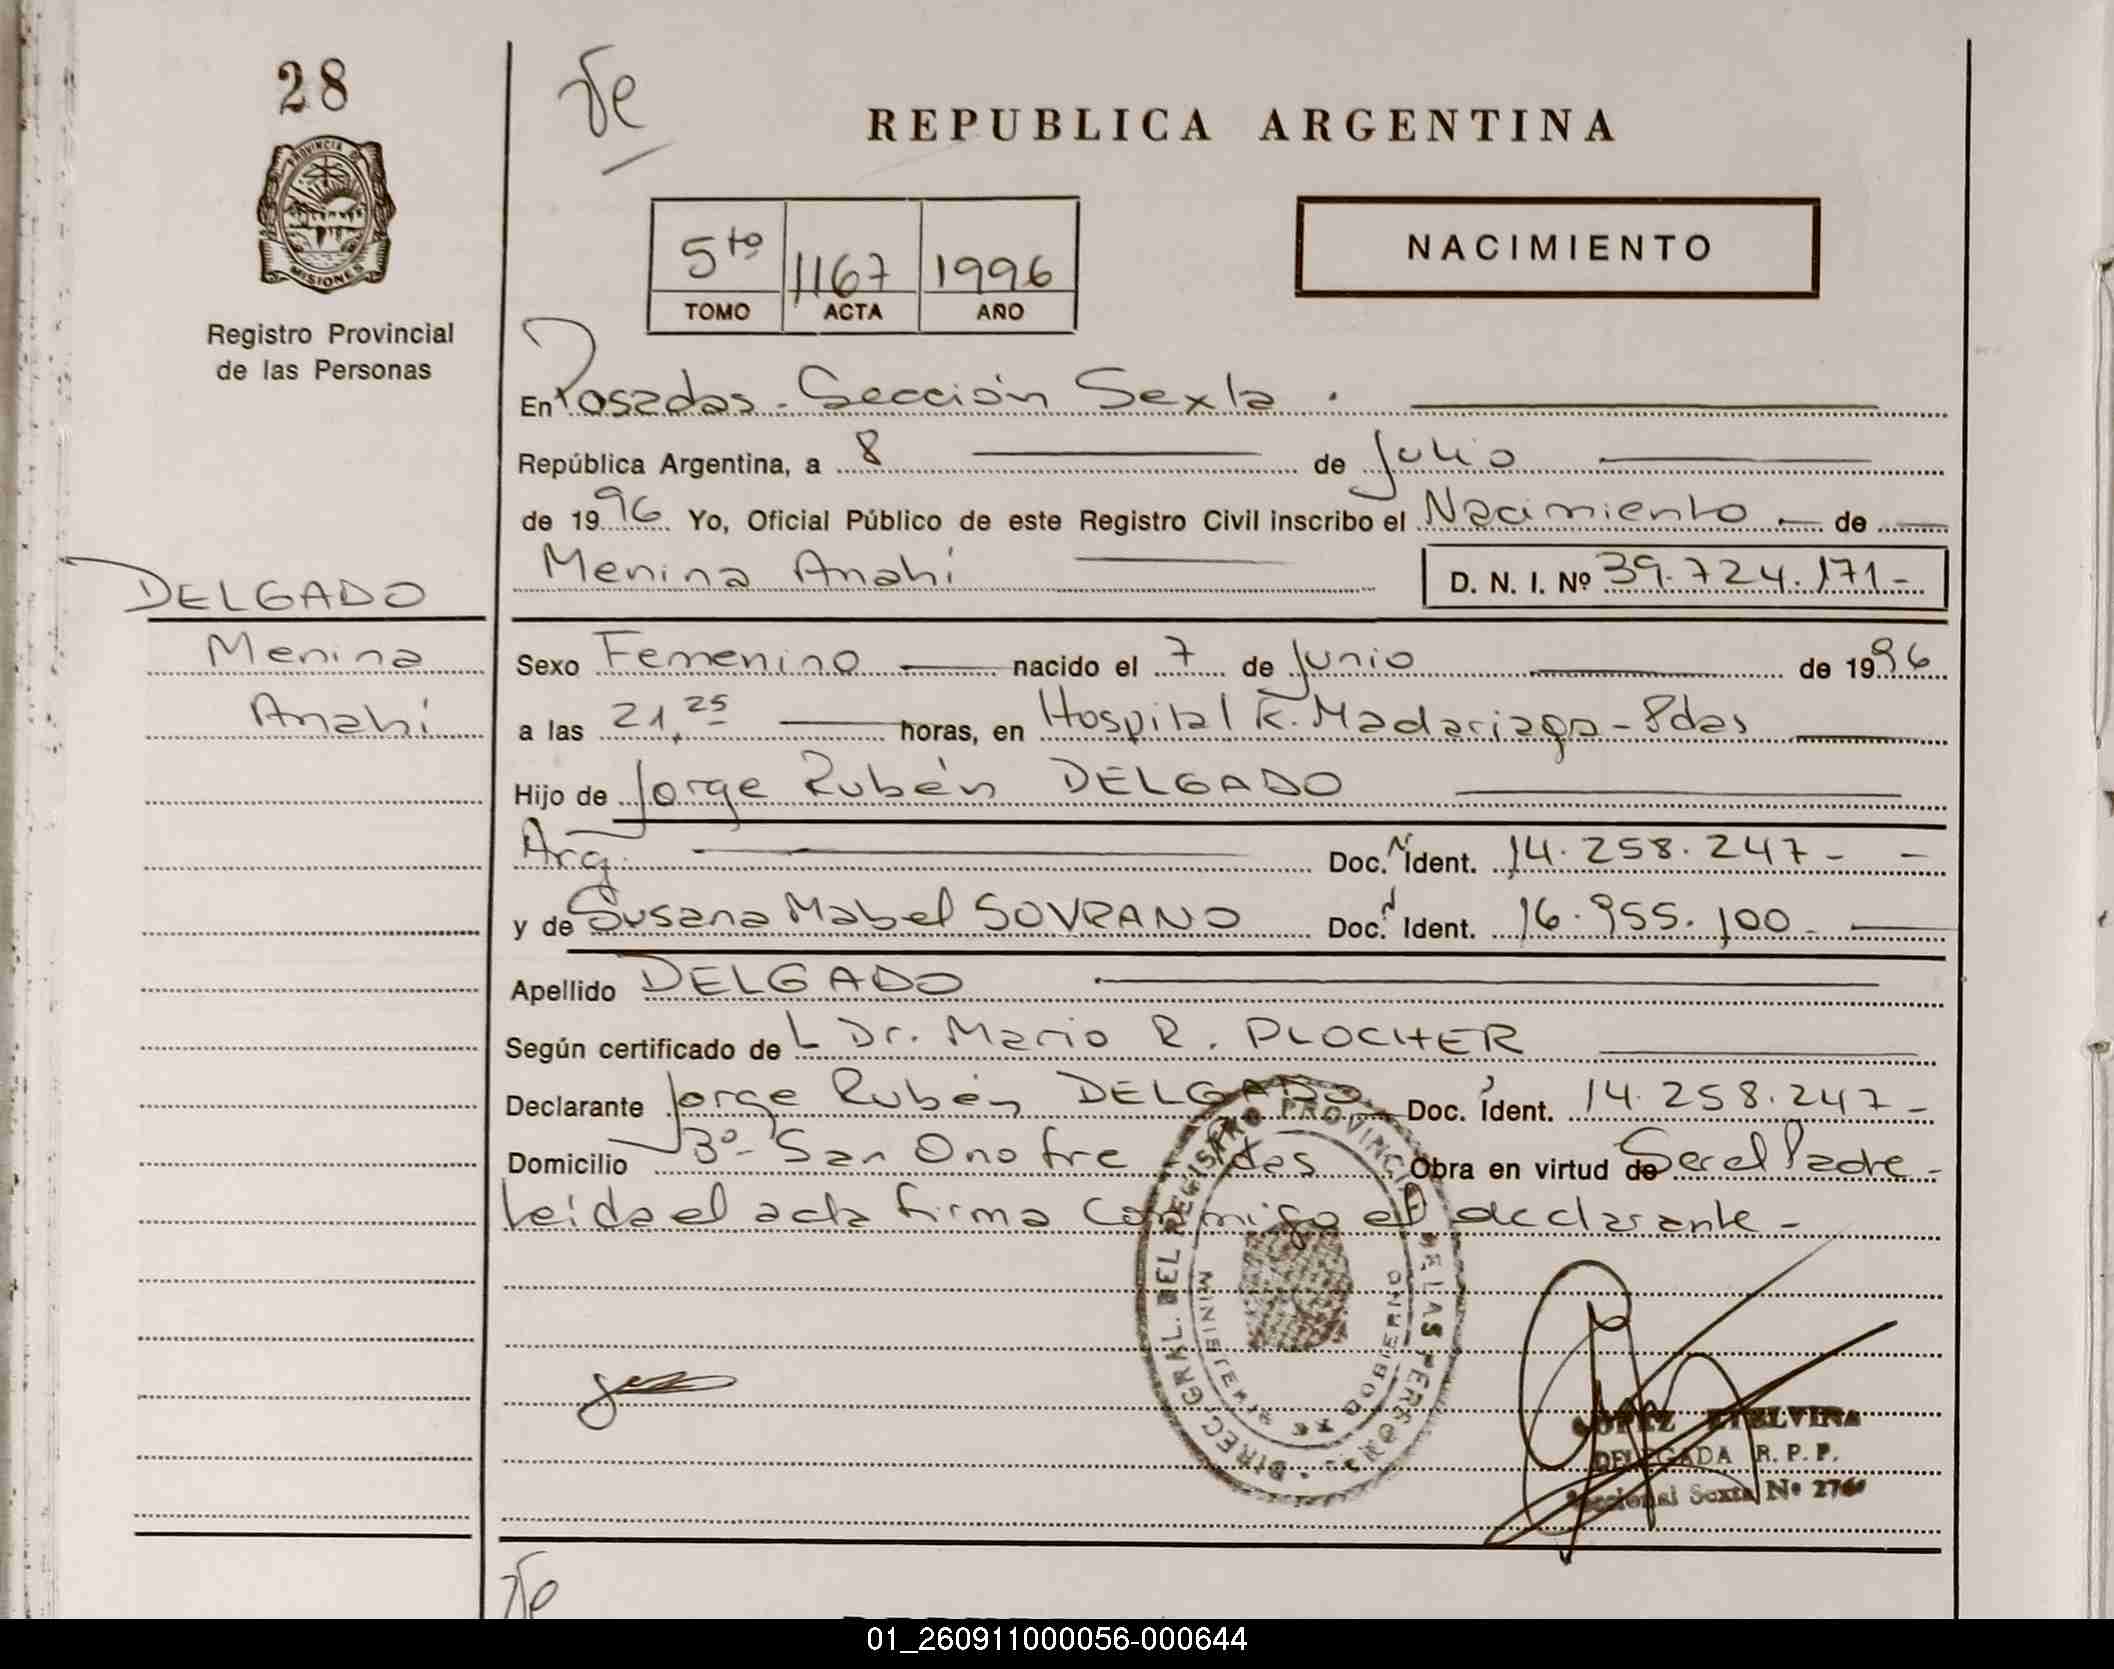 28
PROVINCIA D
MISIONES
Registro Provincial
de las Personas
REPUBLICA ARGENTINA
NACIMIENTO
5to 1167 1996
TOMO ACTA AÑO
En Posadas - Sección Sexta.
República Argentina, a 8 de Julio
de 1996 Yo, Oficial Público de este Registro Civil inscribo el Nacimiento de
Menina Anahí D. N. I. Nº 39.724.171-
DELGADO
Menina
Anahí
Sexo Femenino nacido el 7 de Junio de 1996
a las 21,25 horas, en Hospital R. Madariaga - Pdas
Hijo de Jorge Rubén DELGADO
Arg. Doc. Ident. 14.258.247-
y de Susana Mabel SOVRANO Doc. Ident. 16.955.100-
Apellido DELGADO
Según certificado de L Dr. Mario R. PLOCHER
Declarante Jorge Rubén DELGADO Doc. Ident. 14.258.247-
Domicilio 3º- San Onofre Pdas Obra en virtud de Ser el Padre-
Leida el acta firma conmigo el declarante-
DIREC. GRAL. DEL REGISTRO PROVINCIAL DE LAS PERSONAS
MINISTERIO DE GOBIERNO
LOPEZ ETELVINA
DELEGADA R. P. P.
Seccional Sexta Nº
01_260911000056-000644